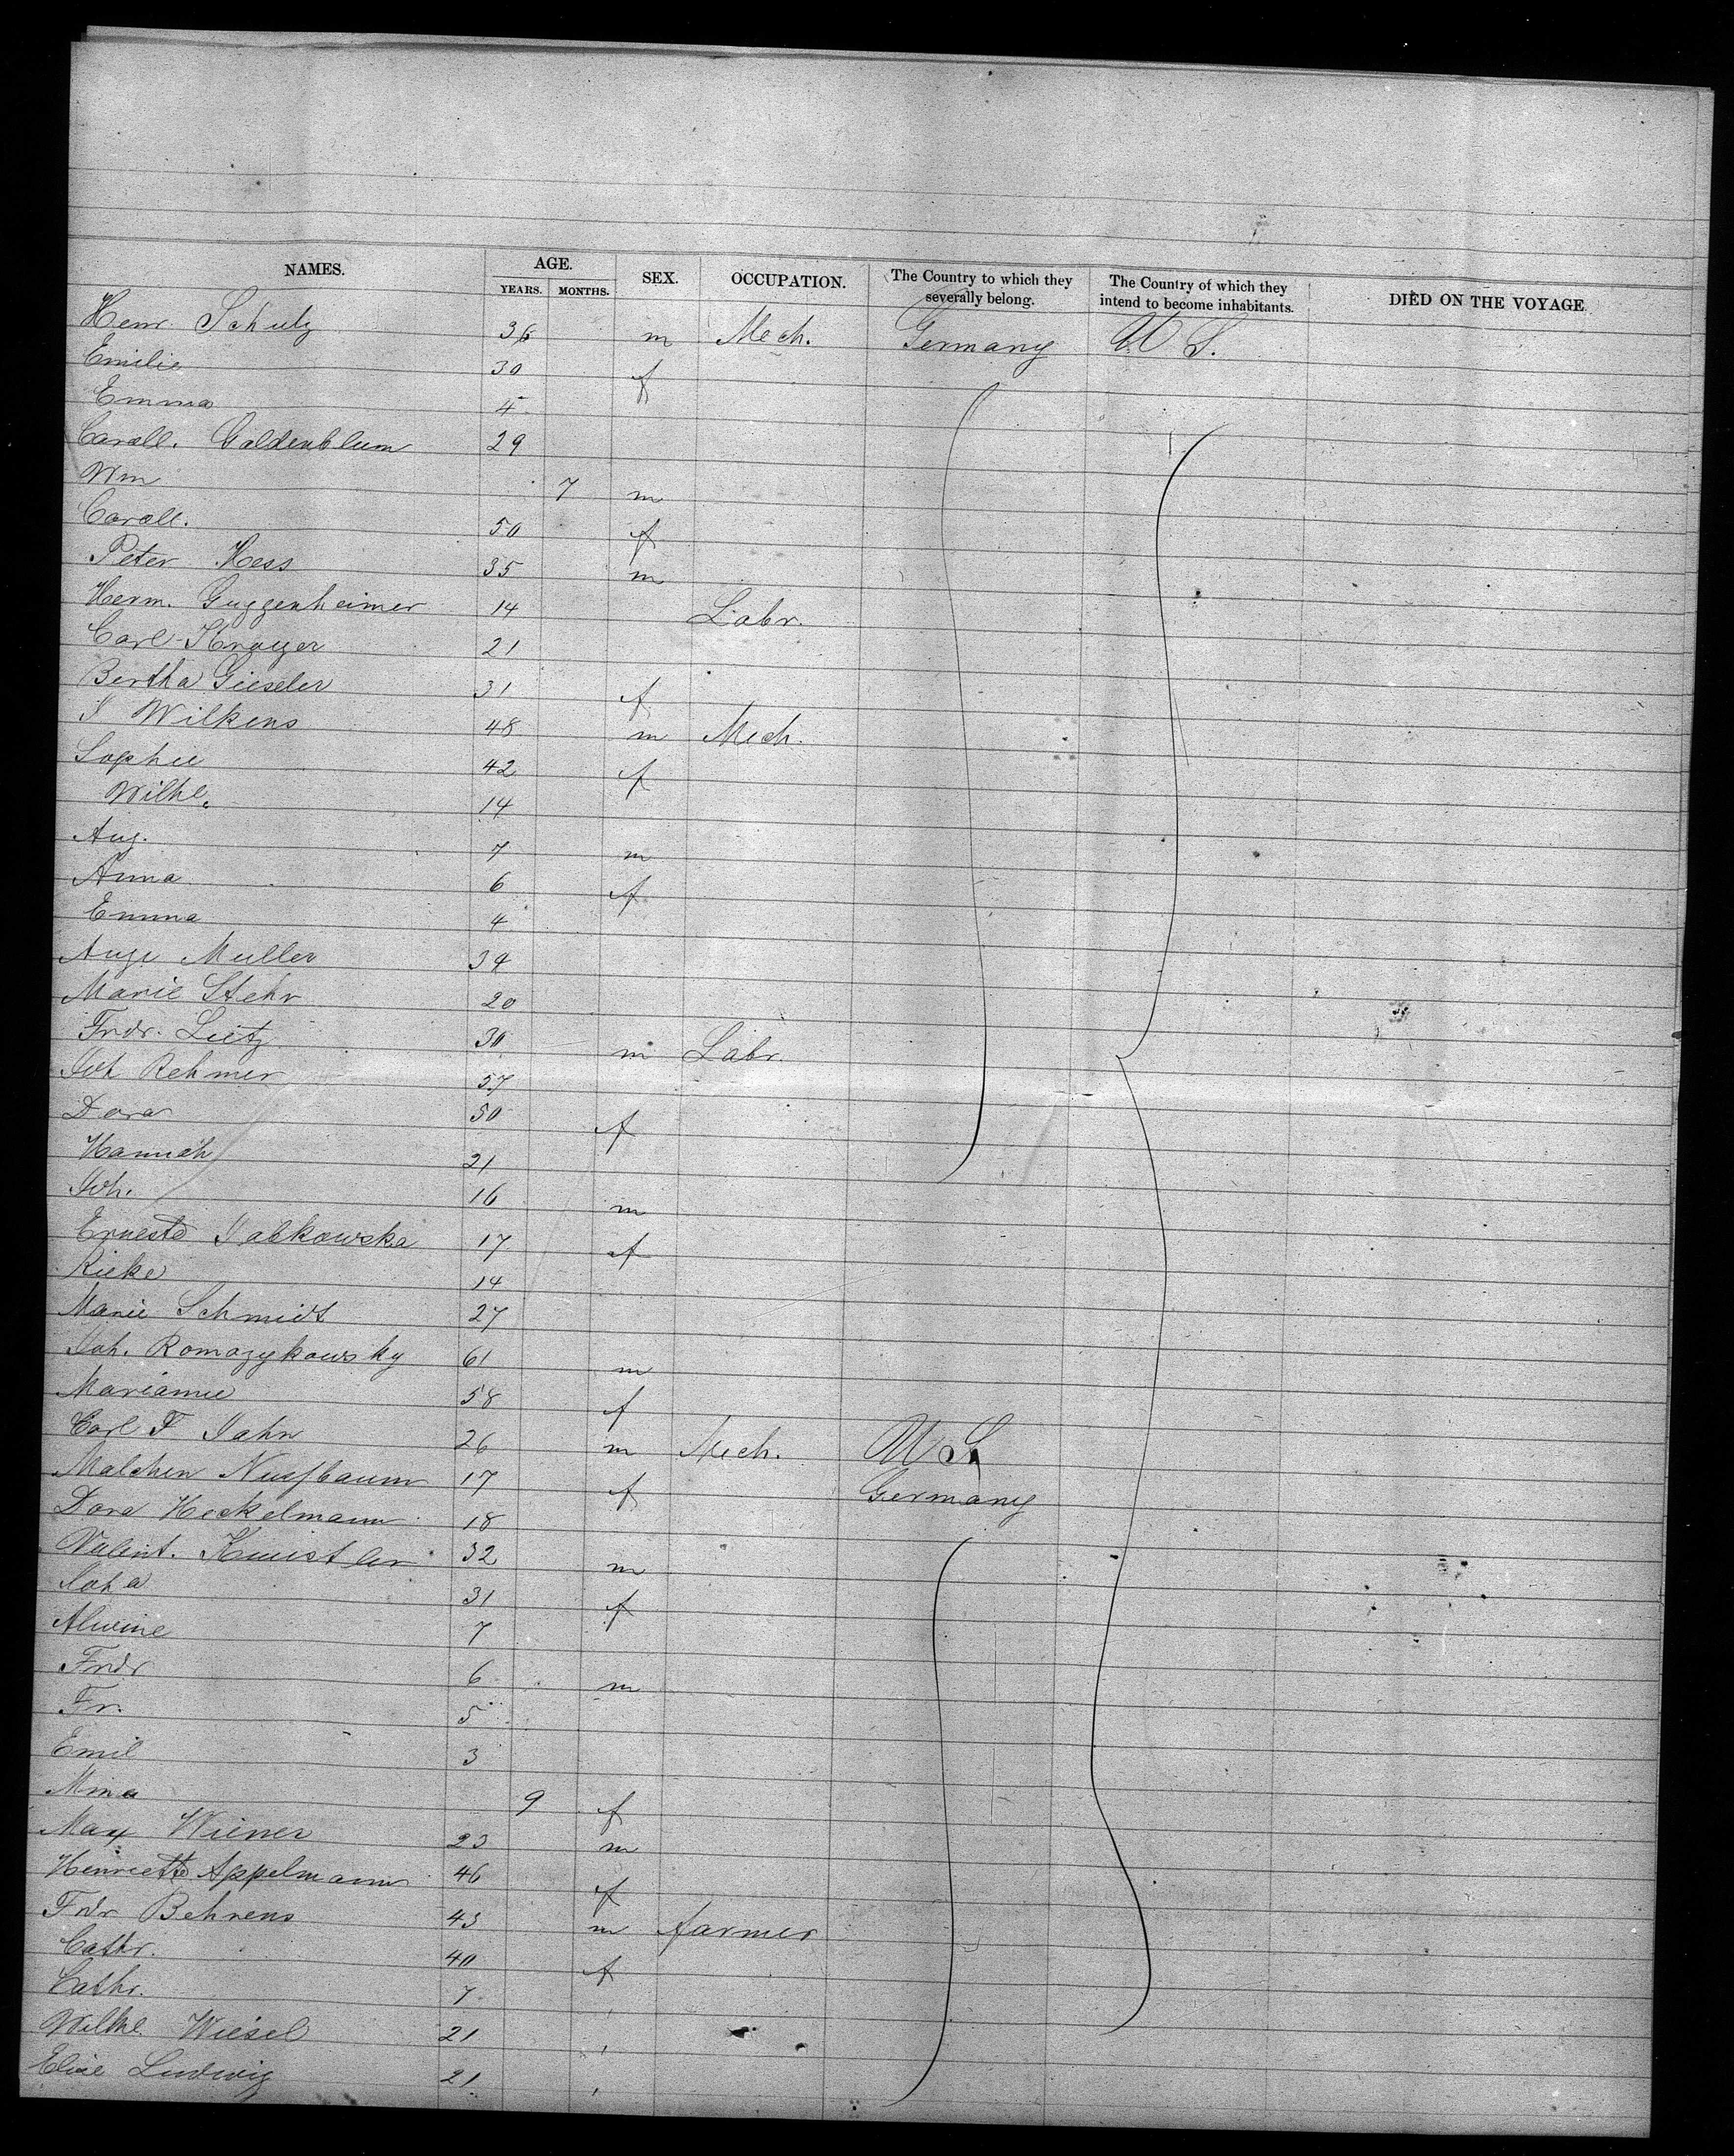 NAMES. AGE. SEX. OCCUPATION. The Country to which they The Country of which they DIED ON THE VOYAGE
YEARS. MONTHS. severally belong. intend to become inhabitants.
Henr. Schulz 36 m Mech. Germany U S.
Emilie 30 f
Emma 4
Caroll. Goldenblum 29
Wm 7 m
Caroll. 50 f
Peter Hess 35 m
Herm. Guggenheimer 14 Labr.
Carl 21
Bertha Gieseler 31 f
I Wilkens 48 m Mech.
Sophie 42 f
Wilhe. 14
Aug. 7 m
Anna 6 f
Emma 4
Auge Muller 34
Marie Stehr 20
Frdr. Lietz 30 m Labr.
Joh Rehmer 57
Dora 50 f
Hannah 21
Joh. 16 m
Erneste Jabkowska 17 f
Rieke 14
Marie Schmidt 27
Joh. Romazykowsky 61 m
Marianne 58 f
Carl F Jahn 26 m Mech. U S
Malchen Nussbaum 17 f Germany
Dora Heckelmann 18
Valent. 32 m
Joha 31 f
Alwine 7
Frdr 6 m
Fr. 5
Emil 3
Mina 9 f
Max Wiener 23 m
Henriette Appelmann 46 f
Frdr Behrens 43 m farmer
Cathr. 40 f
Cathr. 7 ,
Wilhe Wiesel 21 ,
Elise Ludwig 21 ,